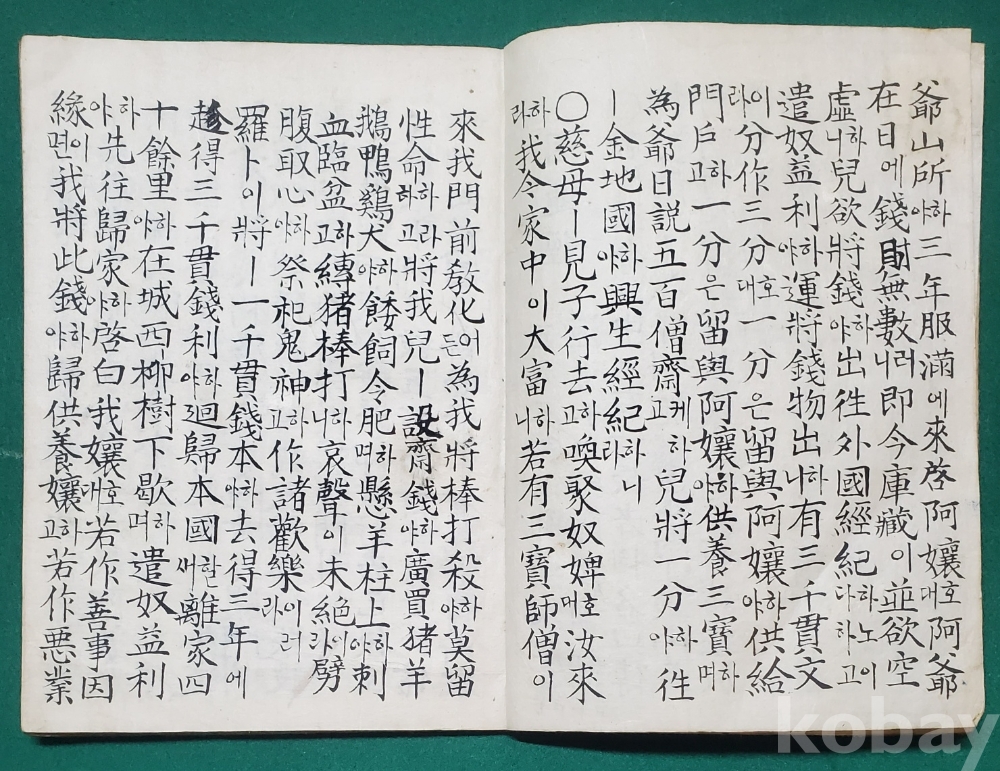 爺山所하야三年服滿에來啓阿孃호대阿爺
在日에錢財無數러니即今庫藏이並欲空
虛하니兒欲將錢하야出徃外國經紀하노이다하고
遣奴益利하야運將錢物出하니有三千貫文
이라分作三分호대一分은留與阿孃하야供給
門戶하고一分은留與阿孃하야供養三寶하며
為爺日説五百僧齋케하고兒將一分하야徃
ㅣ金地國하야興生經紀하리라하니
○慈母ㅣ見子行去하고喚聚奴婢호매汝來
하라我今家中이大富하니若有三寶師僧이
來我門前教化어든為我將棒打殺하야莫留
性命하라하고將我兒ㅣ設齋錢하야廣買猪羊
鵝鴨鷄犬하야餧飼令肥하며懸羊柱上하야刺
血臨盆하고縛猪棒打하니哀聲이未絶이라劈
腹取心하야祭祀鬼神하고作諸歡樂이러라
羅卜이將ㅣ一千貫錢本하야去得三年에
趁得三千貫錢利하야廻歸本國할새離家四
十餘里하야在城西柳樹下歇하며遣奴益利
하야先往歸家하야啓白我孃호대若作善事因
緣이면我將此錢하야歸供養孃하고若作惡業
kobay